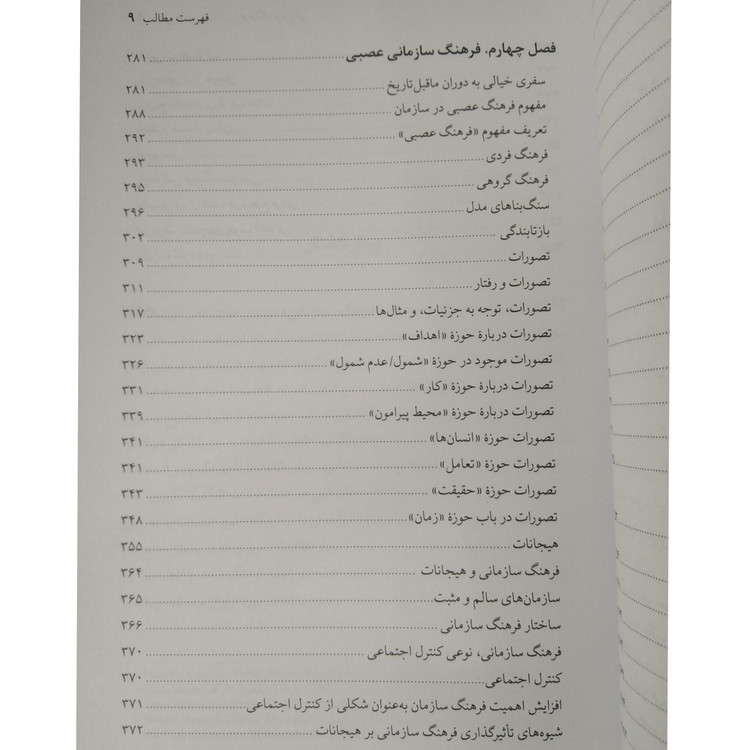 فهرست مطالب ۹
فصل چهارم. فرهنگ سازمانی عصبی ۲۸۱
سفری خیالی به دوران ماقبل‌تاریخ ۲۸۱
مفهوم فرهنگ عصبی در سازمان ۲۸۸
تعریف مفهوم «فرهنگ عصبی» ۲۹۲
فرهنگ فردی ۲۹۳
فرهنگ گروهی ۲۹۵
سنگ‌بناهای مدل ۲۹۶
بازتابندگی ۳۰۲
تصورات ۳۰۹
تصورات و رفتار ۳۱۱
تصورات، توجه به جزئیات، و مثال‌ها ۳۱۷
تصورات دربارهٔ حوزهٔ «اهداف» ۳۲۳
تصورات موجود در حوزهٔ «شمول/عدم شمول» ۳۲۶
تصورات دربارهٔ حوزهٔ «کار» ۳۳۱
تصورات دربارهٔ حوزهٔ «محیط پیرامون» ۳۳۹
تصورات حوزهٔ «انسان‌ها» ۳۴۱
تصورات حوزهٔ «تعامل» ۳۴۱
تصورات حوزهٔ «حقیقت» ۳۴۳
تصورات در باب حوزهٔ «زمان» ۳۴۸
هیجانات ۳۵۵
فرهنگ سازمانی و هیجانات ۳۶۴
سازمان‌های سالم و مثبت ۳۶۵
ساختار فرهنگ سازمانی ۳۶۶
فرهنگ سازمانی، نوعی کنترل اجتماعی ۳۷۰
کنترل اجتماعی ۳۷۰
افزایش اهمیت فرهنگ سازمان به‌عنوان شکلی از کنترل اجتماعی ۳۷۱
شیوه‌های تأثیرگذاری فرهنگ سازمانی بر هیجانات ۳۷۲